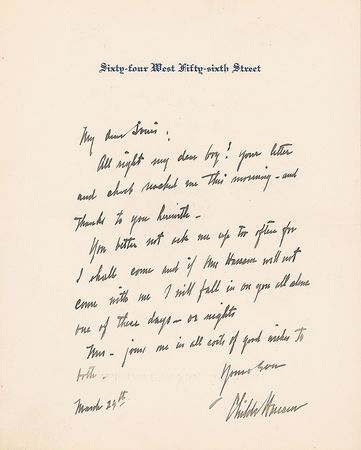 Sixty-four West Fifty-sixth Street
My dear Louis:
All right my dear boy! your letter
and check reached me this morning - and
thanks to you herewith -
You better not ask me up too often for
I shall come and if Mrs Hassam will not
come with me I will fall in on you all alone
one of these days - or nights
Mrs - joins me in all sorts of good wishes to
both -
Yours
March 29th
Childe Hassam